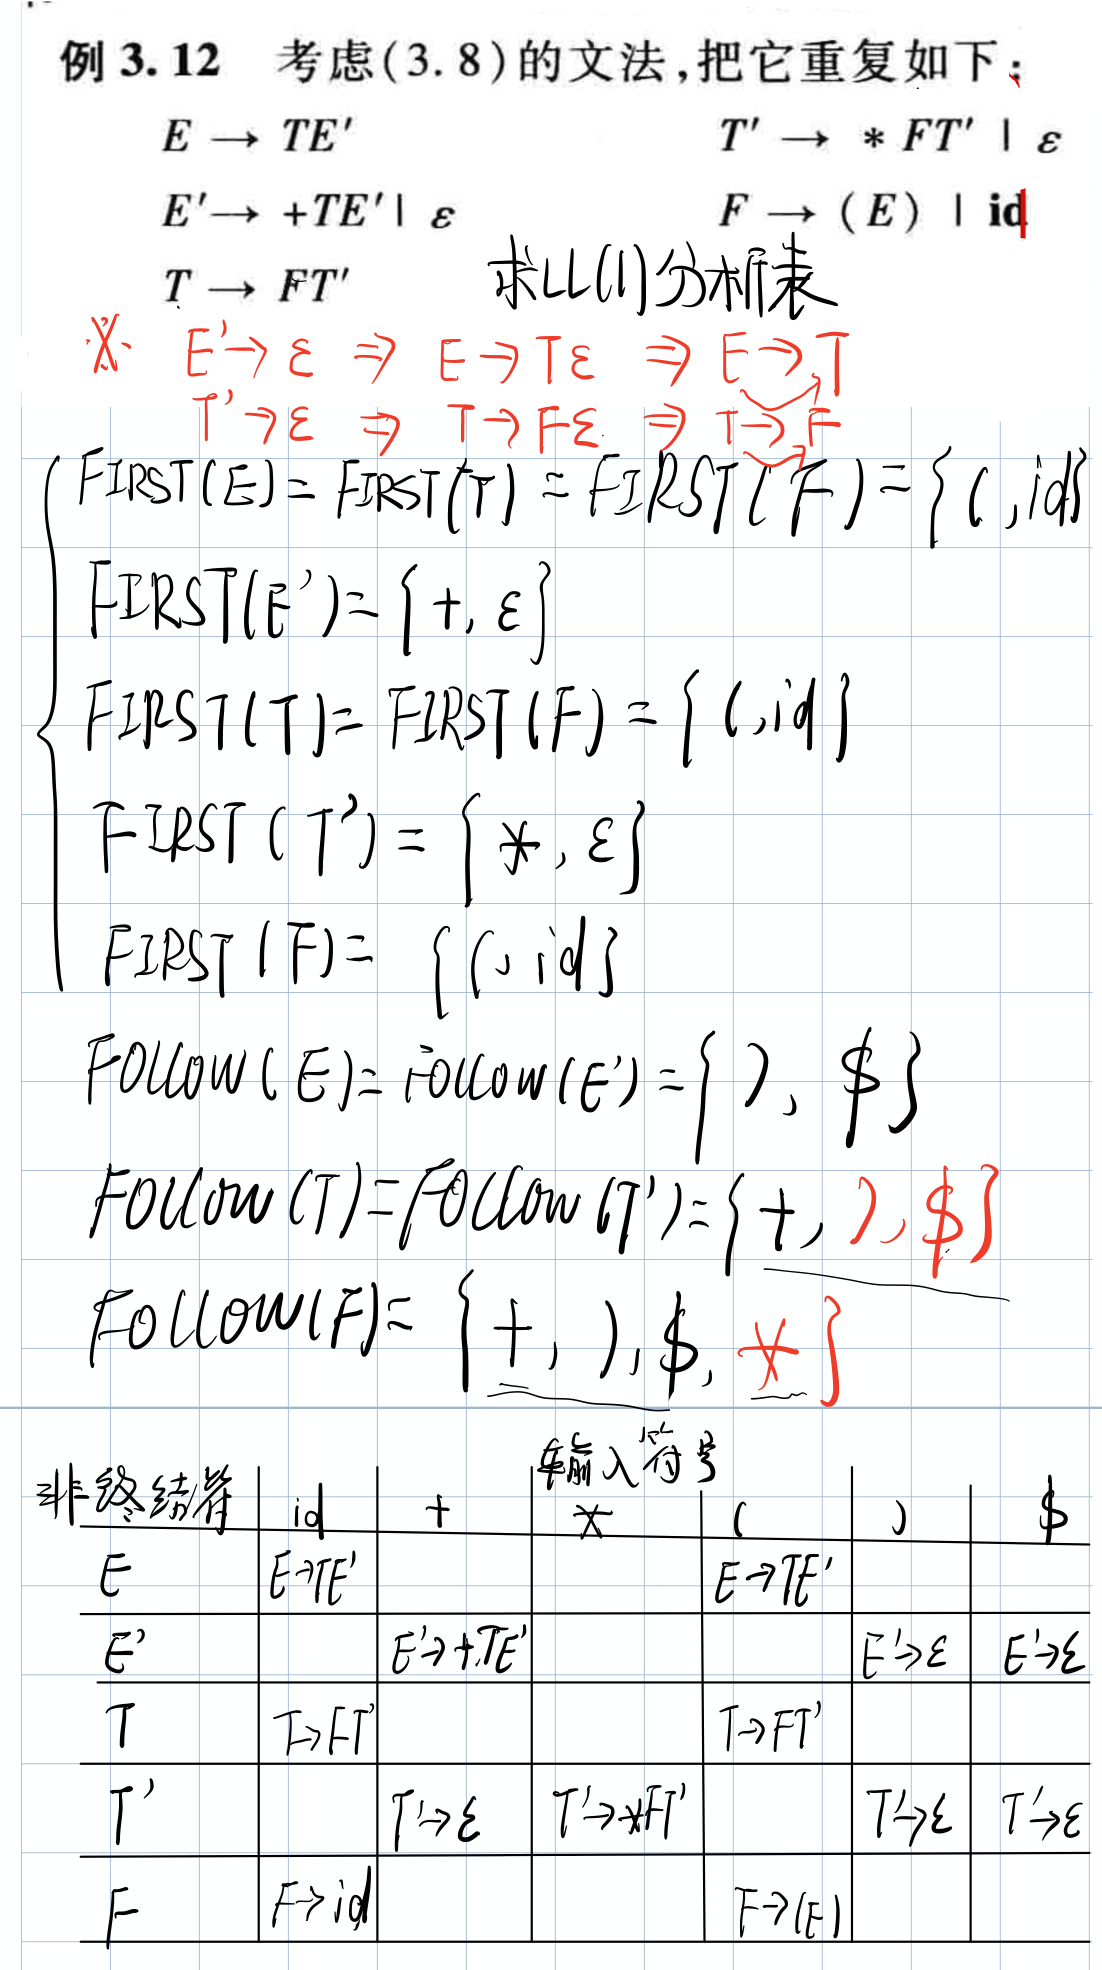 例 3.12 考虑(3.8)的文法,把它重复如下:
E → TE′ T′ → * FT′ | ε
E′→ +TE′| ε F → (E) | id
T → FT′ 求LL(1)分析表
※ E'→ε ⇒ E→Tε ⇒ E→T
T'→ε ⇒ T→Fε ⇒ T→F
FIRST(E) = FIRST(T) = FIRST(F) = {(,id}
FIRST(E') = {+, ε}
FIRST(T) = FIRST(F) = {(,id}
FIRST(T') = {*, ε}
FIRST(F) = {(, id}
FOLLOW(E) = FOLLOW(E') = {), $}
FOLLOW(T) = FOLLOW(T') = {+, ), $}
FOLLOW(F) = {+, ), $, *}
输入符号
非终结符 id + * ( ) $
E E→TE' E→TE'
E' E'→+TE' E'→ε E'→ε
T T→FT' T→FT'
T' T'→ε T'→*FT' T'→ε T'→ε
F F→id F→(E)